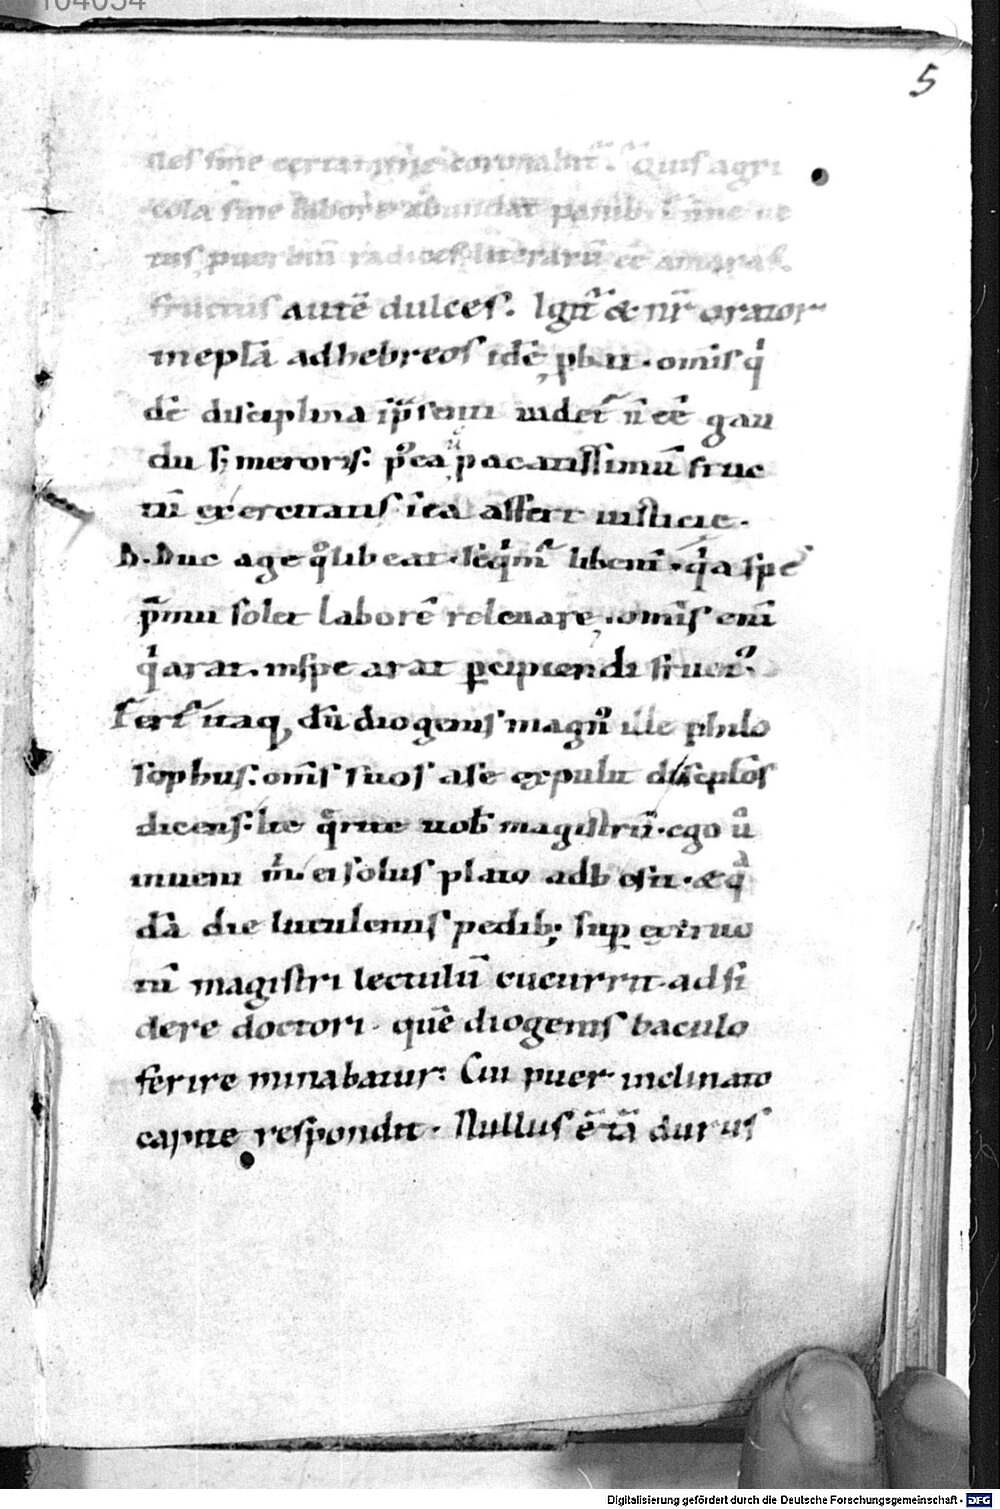 104054
5
les sine certamine coronabit᷑. Quis agri
cola sine labore abundat panib;. nne ue
tus puerbiū radices litterarū eē amaras.
fructus autē dulces. Igit᷑ & nr̄ orator
in epl̄a ad hebreos idē pbat. omīs q
dē disciplina ip̄senti uidet᷑ n̄ eē gau
dii s; meroris. p̾ea pacatissimū fruc
tū exercitatis in ea affert iusticie.
D. Duc age q̊ libeat. seq̄m̄ libent᷑. q̇a spes
p̄mii solet laborē releuare. omīs eni
q̇ arat. in spe arat p̱cipiendi fruct᷒.
Fert᷑ itaq, dū diogenis magn᷒ ille philo
sophus. om̄s suos a se expulit discipl̄os
dicens. ite q̊rite uob̄ magistrū. ego ů
inueni m̊. ei solus plato adhesit. & q̇
dā die luculentis pedib; sup exstruc
tū magistri lectulū cucurrit. adsi
dere doctori. quē diogenis baculo
ferire minabatur. Cui puer inclinato
capite respondit. Nullus ē tā durus
Digitalisierung gefördert durch die Deutsche Forschungsgemeinschaft - DFG